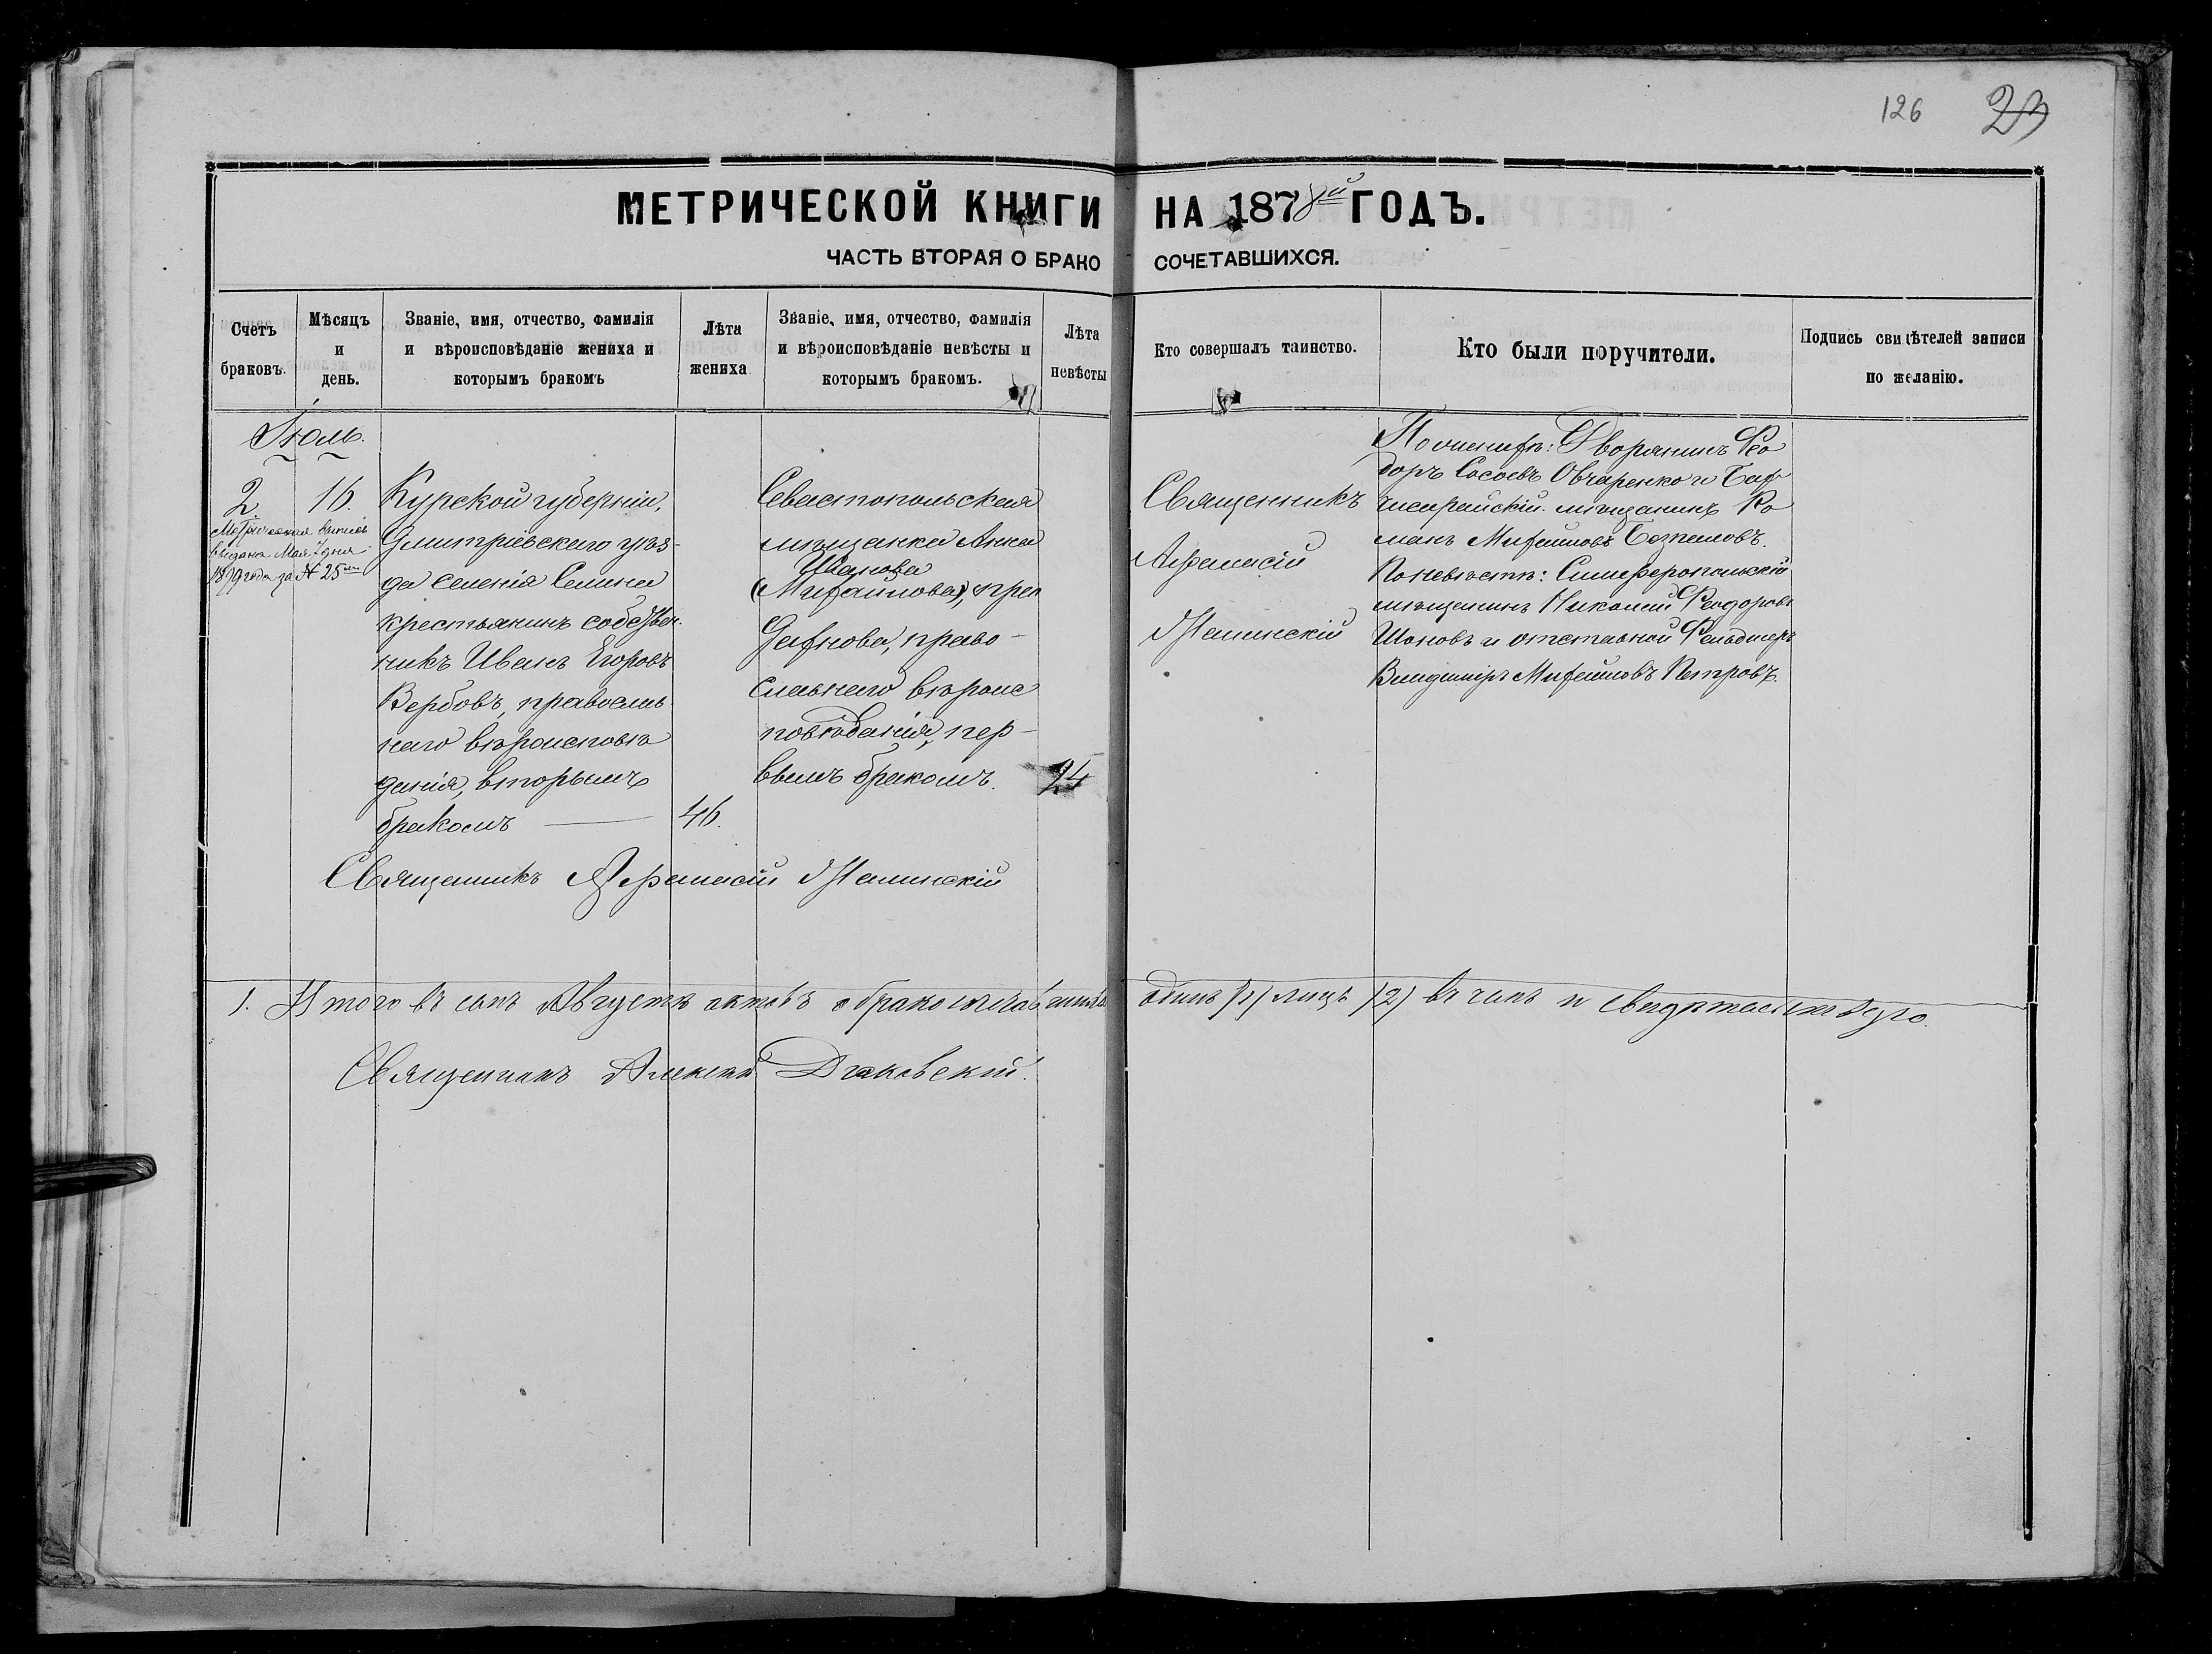 126 23
МЕТРИЧЕСКОЙ КНИГИ НА 1878й ГОДЪ.
ЧАСТЬ ВТОРАЯ О БРАКО СОЧЕТАВШИХСЯ.
Счетъ браковъ.
Мѣсяцъ и день.
Званіе, имя, отчество, фамилія и вѣроисповѣданіе жениха и которымъ бракомъ
Лѣта жениха
Званіе, имя, отчество, фамилія и вѣроисповѣданіе невѣсты и которымъ бракомъ.
Лѣта невѣсты
Кто совершалъ таинство.
Кто были поручители.
Подпись свидѣтелей записи по желанію.
Іюль.
2 16.
Метрическая выпись
выдана Мая 7 дня
1899 года за № 25
Курской губерніи,
Дмитріевскаго уѣз-
да селенія Селина
крестьянинъ собствен-
никъ Иванъ Егоровъ
Вербовъ, православ
наго вѣроисповѣ
данія, вторымъ
бракомъ — 46.
Севастопольская
мѣщанка Анна
Иванова
(Михайлова),
Дахнова, право-
славнаго вѣроис
повѣданія, пер-
вымъ бракомъ. 24
Священникъ
Афанасій
По женихѣ: Дворянинъ Ѳео
доръ Сосоевъ Овчаренко и Бах
чисарайскій мѣщанинъ Ро
манъ Михайловъ
По невѣстѣ: Симферопольскій
мѣщанинъ Николай Ѳеодоровъ
Шоновъ и отставной Фельдшеръ
Владиміръ Михайловъ Петровъ.
Священникъ Афанасій
1. Итого въ семъ Августѣ актовъ о бракосочетавшихся одинъ (1) лицъ (2) въ чемъ и свидѣтельствую.
Священникъ Алексій Дьяковскій.